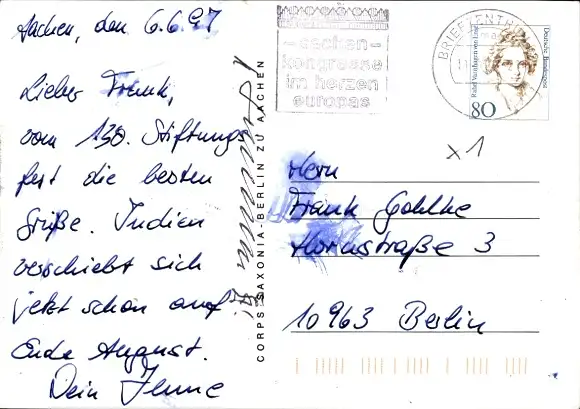 Aachen, den 6.6.97
Lieber Frank,
vom 130. Stiftungs
fest die besten
Grüße. Indien
verschiebt sich
jetzt schon auf
Ende August.
Dein
CORPS SAXONIA-BERLIN ZU AACHEN
– aachen –
kongresse
im herzen
europas
BRIEFZENTRUM
Deutsche Bundespost
Rahel Varnhagen von Ense
80
x 1
Herrn
Frank Gohlke
Hornstraße 3
10963 Berlin